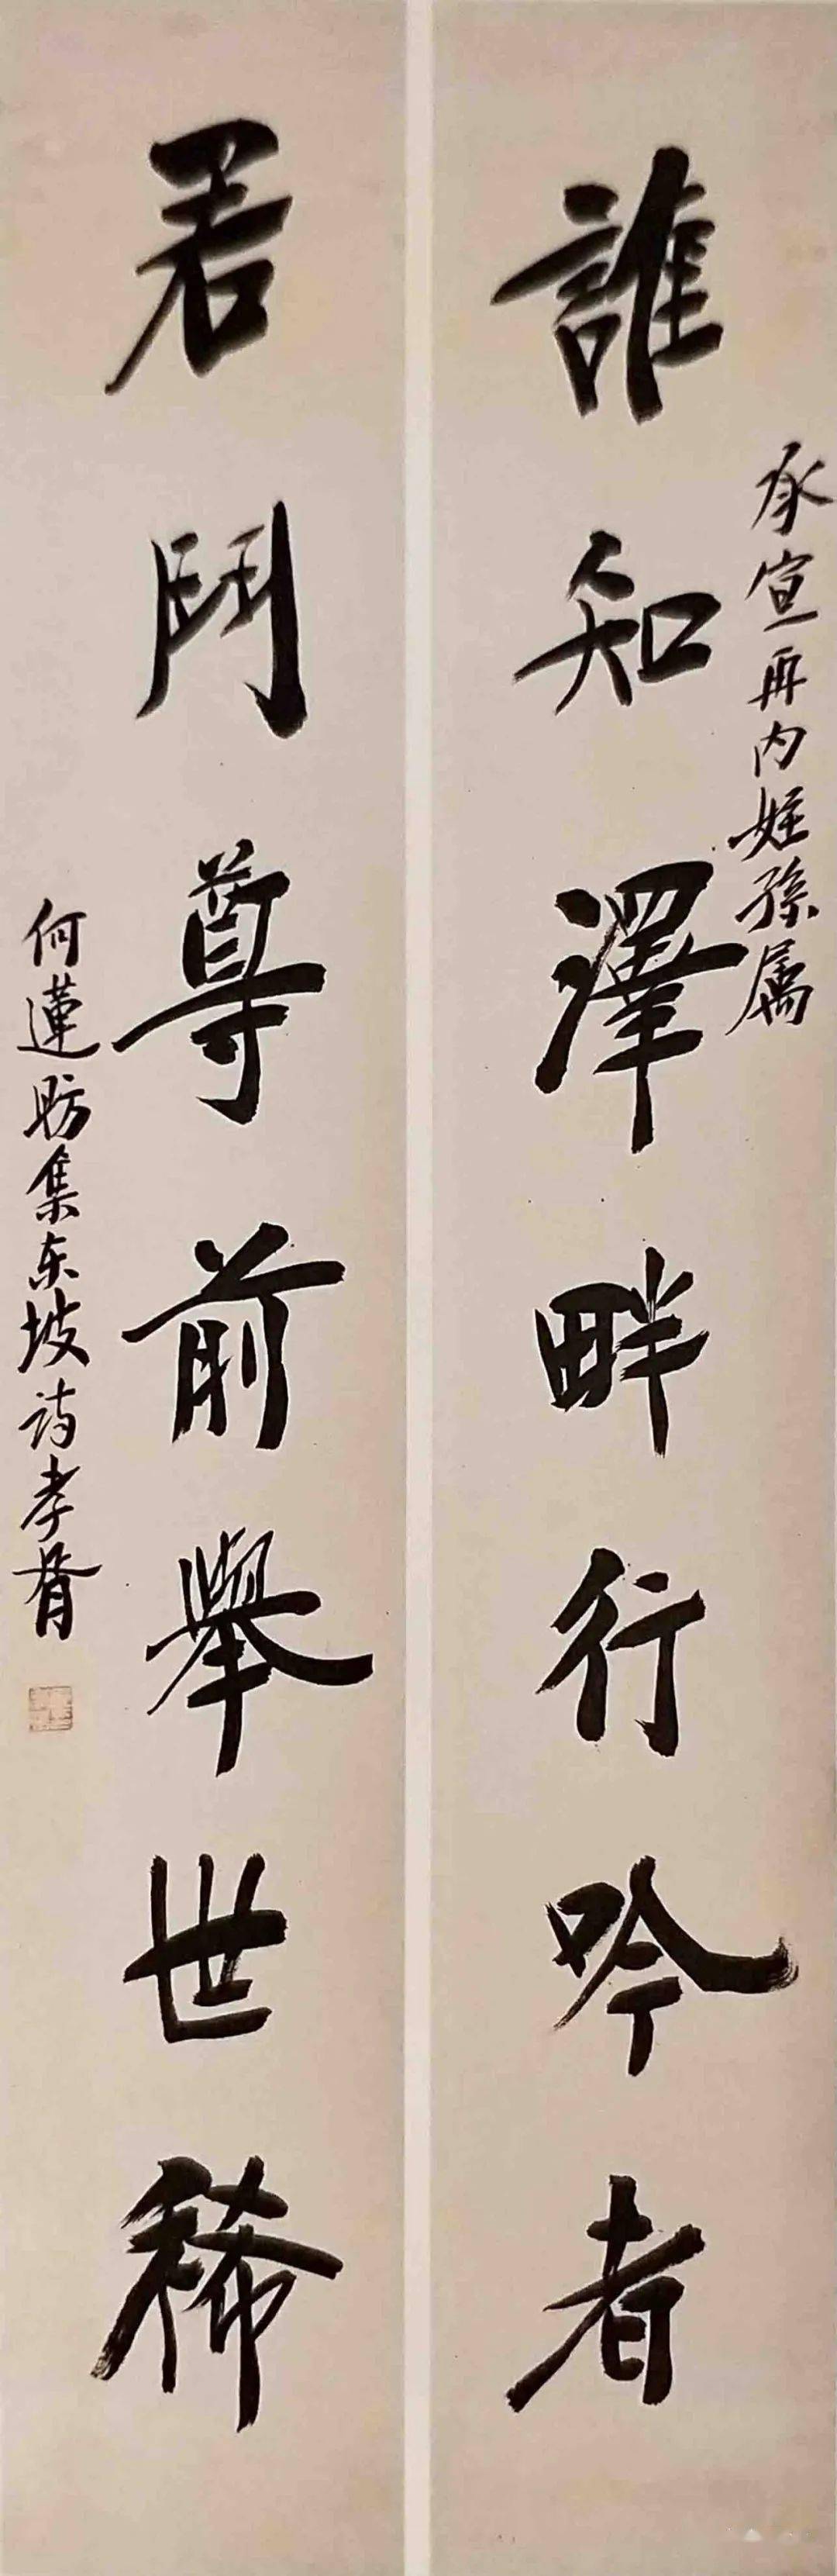 誰知澤畔行吟者
承宣再内姪孫属
若鬥尊前舉世稀
何蓮舫集东坡诗孝胥